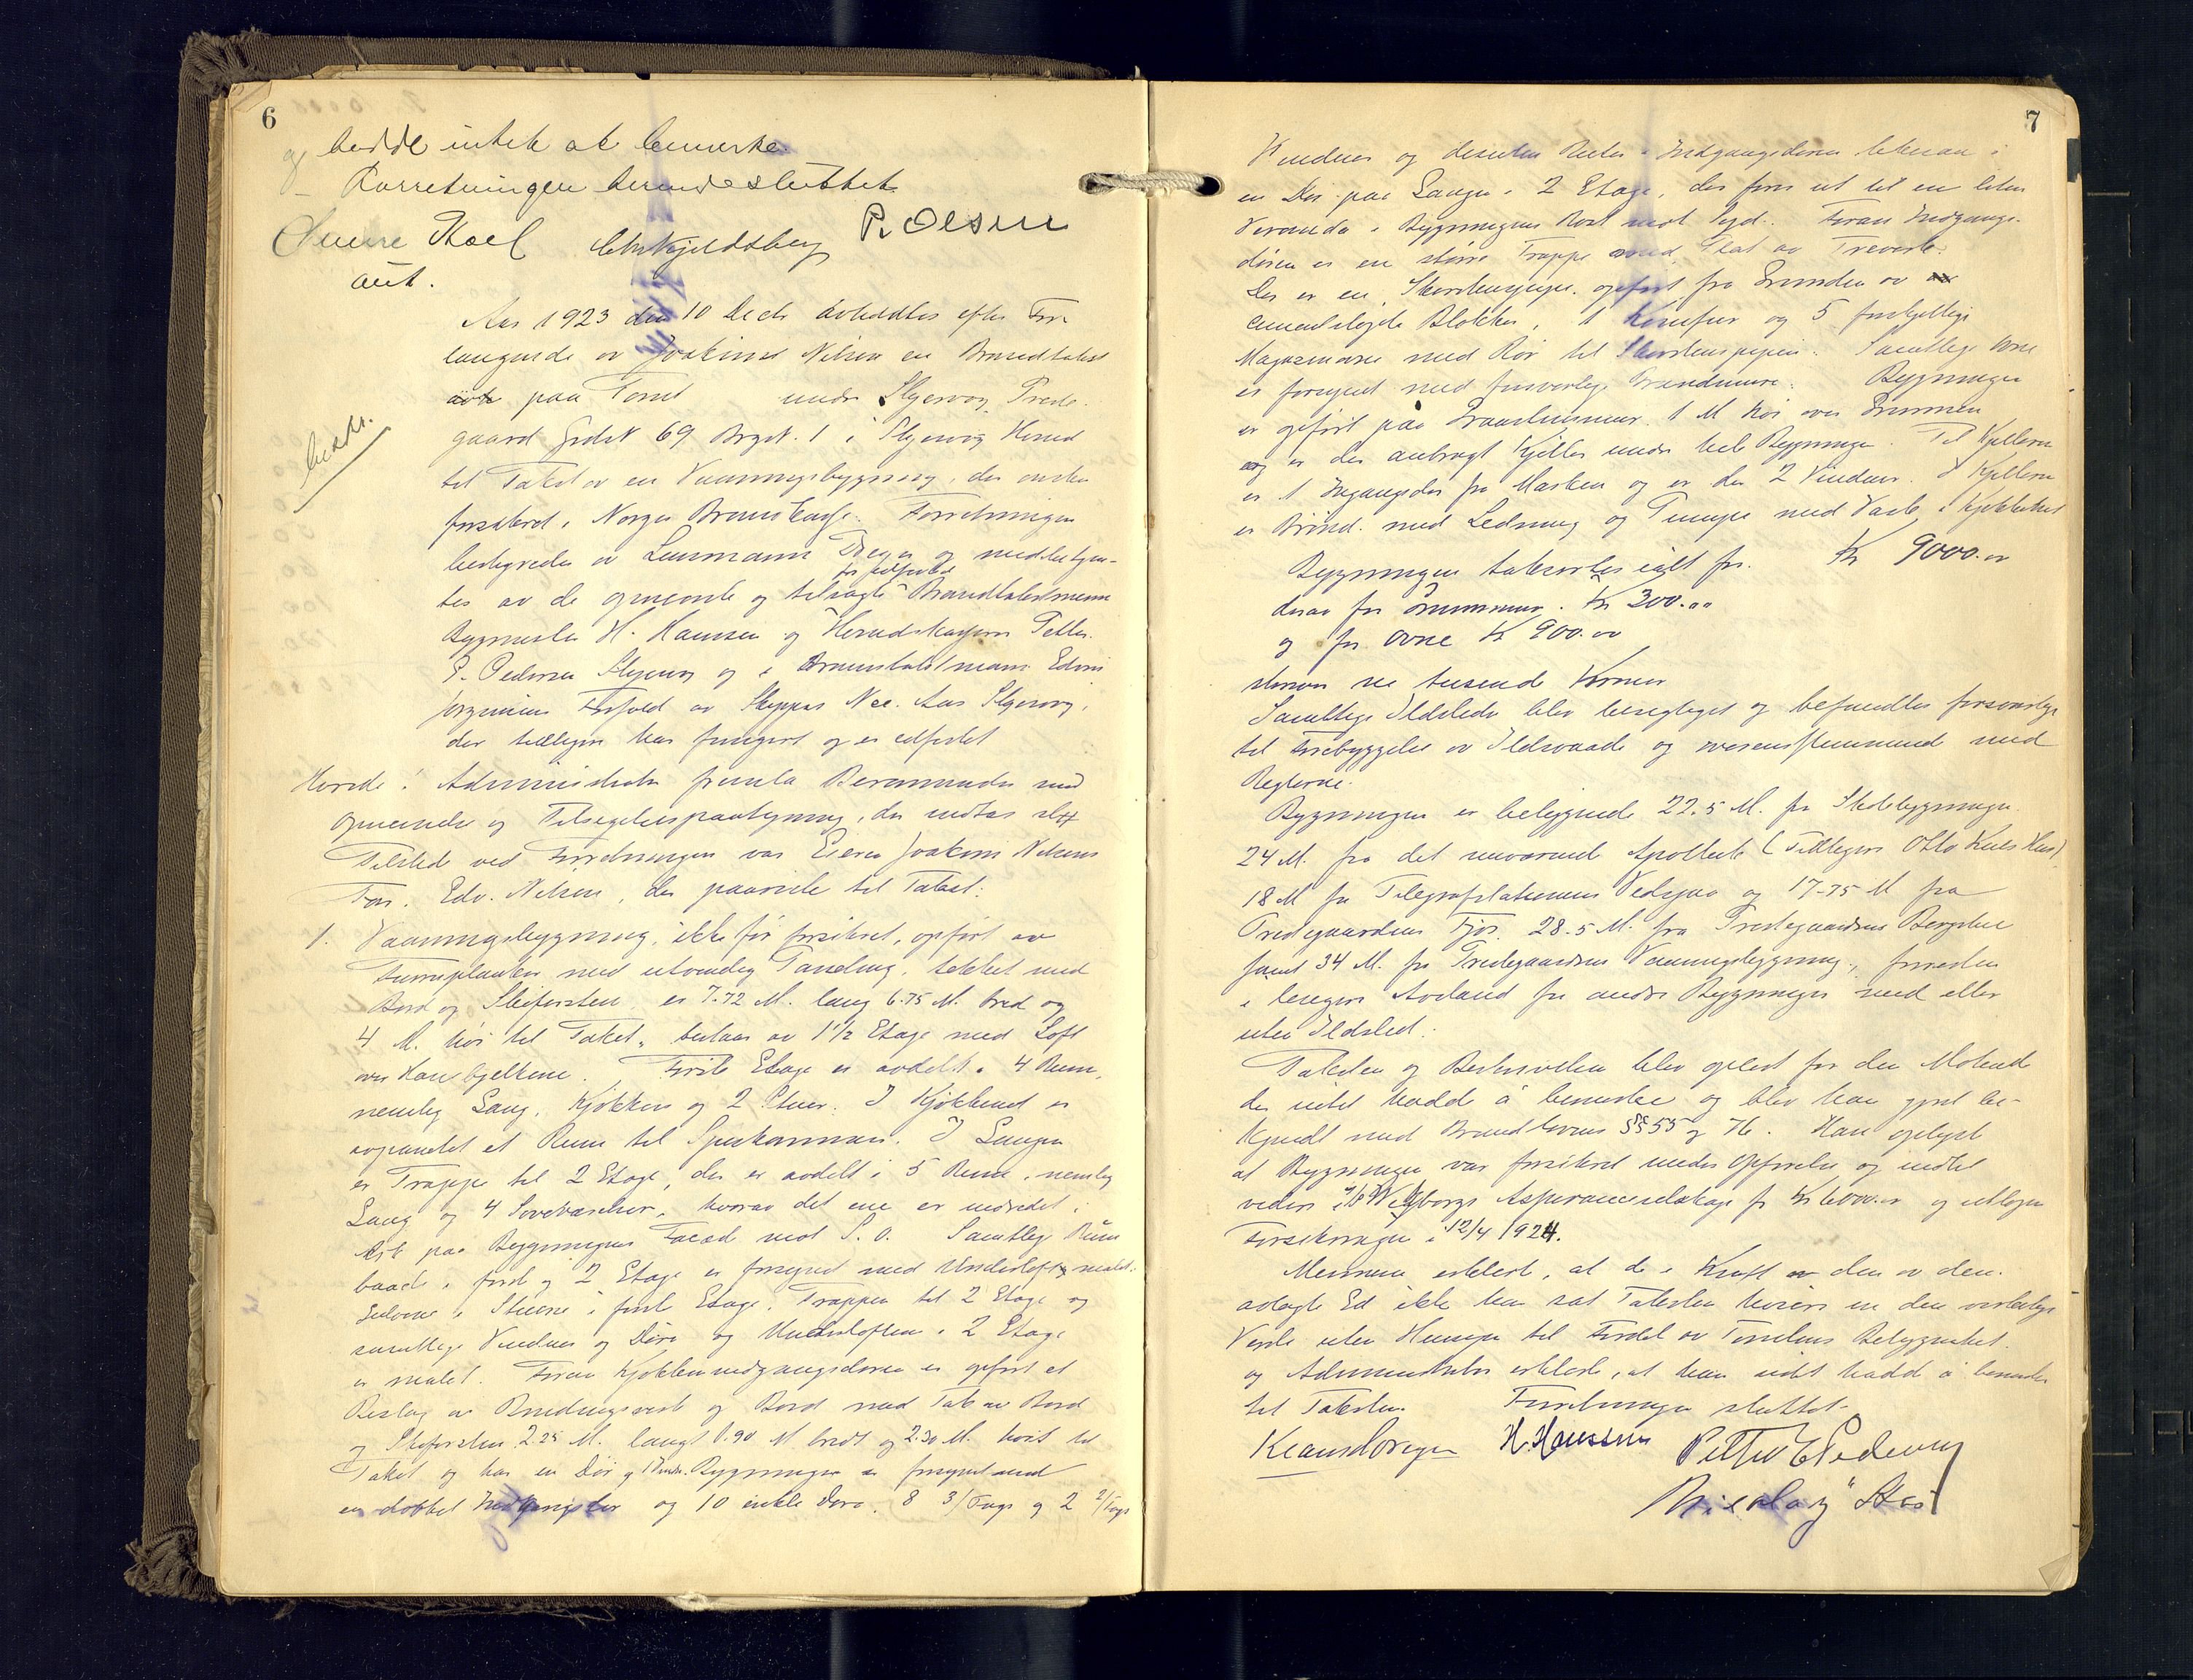 6
og hadde intet at bemerke.
Forretningen dermed sluttet
Sverre Roel Chr Kjeldsberg P. Olsen
aut.
Aar 1923 den 10 Decbr avholdtes efter For
langende av Joakim Nilsen en Brandtakst
paa Tomt under Skjervøy Preste-
gaard Grdsn 69 Brgsn. 1 i Skjervøy Herred
til Takst av en Vaaningsbygning, der ønskes
forsikret i Norges Brandkasse. Forretningen
bestyredes av Lensmann og medbetjen-
tes av de opnævnte og tilsagte Brandtakstmenn
Bygmester H. Hansen og Herredskasserer Petter
E. Pedersen Skjervøy og i Brandtakstmann Edvin
Jørgensens Forfald av Skipper Nic. Aas Skjervøy,
der tidligere har fungert og er edfæstet
Herede: Administrator fremla Berammelse med
Opnævnelse og Tilsigelsespaategning, der indtas
Tilstede ved Forretningen var Eieren Joakim Nilsens
Far, Edv. Nilsen, der paaviste til Takst:
1. Vaaningsbygning, ikke før forsikret, opført av
Furuplanker med utvendig Paneling, tekket med
Bord og Skifersten er 7.72 M. lang 6.75 M. bred og
4 M. høi til Taket, bestaar av 1 1/2 Etage med Loft
over Hanebjelkene. Første Etage er avdelt i 4 Rum,
nemlig Gang, Kjøkken og 2 Stuer. I Kjøkkenet er
avpanelet et Rum til Spiskammer. I Gangen
er Trappe til 2 Etage, der er avdelt i 5 Rum, nemlig
Gang og 4 Soveværelser, hvorav det ene er indredet i
Ark paa Bygningens Facade mot S. O. Samtlige Rum
baade i først og 2 Etage er forsynet med Underloft malet.
Gulvene i Stuene i første Etage, Trappen til 2 Etage og
samtlige Vinduer og Døre og Underloften i 2 Etage
er malet. Foran Kjøkkenindgangsdøren er opført et
Bislag av Bindingsverk og Bord med Tak av Bord
og Skifersten 2.25 M. langt 1.90 M bredt og 2.30 M. høit til
Taket og har en Dør og 1 Vindu. Bygningen er forsynt med
en dobbel Indgangsdør og 10 enkle Døre. 8 3/Fags og 2 2/Fags
7
Vinduer og desuten Ruter i Indgangsdøren
en Dør paa Gangen i 2 Etage, der fører ut til en liten
Veranda i Bygningens mot Syd. Foran Indgangs-
døren er en større Trappe med Plat av Treverk.
Der er en Skorstenspipe opført fra Grunden av
cementstøpte Blokker, 1 Komfur og 5 forskjellige
Magasinovne med Rør til Skorstenspipen. Samtlige Ovne
er forsynet med forsvarlige Brandmure. Bygningen
er opført paa Graastensmur 1 M høi over Grunnen
og er der anbragt Kjeller under hele Bygningen. Til Kjelleren
er 1 Ingangsdør fra Marken og er der 2 Vinduer. I Kjelleren
er Brønd med Ledning og Pumpe med Vask i Kjøkkenet
Bygningen taksertes ialt for Kr 9000.00
derav for Grunnmur Kr 300.00
og for Ovne Kr 900.00
skriver ni tusende Kroner
Samtlige Ildsteder blev besigtiget og befundtes forsvarlige
til Forebyggelse av Ildsvaade og overensstemmende med
Reglerne.
Bygningen er beliggende 22.5 M. fra Skolebygningen
24 M. fra det nuværende Apothek (Tidligere Otto Kiils Hus)
18 M fra Telegrafstationens Vedsjaa og 17-75 M fra
Prestegaardens Fjøs 28.5 M. fra Prestegaardens Borgstue
samt 34 M. fra Prestegaardens Vaaningsbygning, forresten
i længere Avstand fra andre Bygninger med eller
uten Ildsted.
Taksten og Beskrivelsen blev oplæst for den Møtende
der intet hadde å bemerke og blev han gjort be-
kjendt med Brandlovens §§ 55 og 76. Han oplyst
at Bygningen var forsikret under Opførelse og indtil
videre i Assuranceselskap for Kr 6000.00 og utløper
Forsikringen 12/4 1924.
Mennene erklærte, at de i Kraft av den av dem
avlagte Ed ikke har sat Taksten høiere en den virkelige
Verdi uten Hensyn til Fordel av Tomtens Beliggenhet.
og Administrator erklærte, at han intet hadde å bemerke
til Taksten. Forretningen sluttet.
H. Hanssen Petter E Pedersen
Nicolay Aas